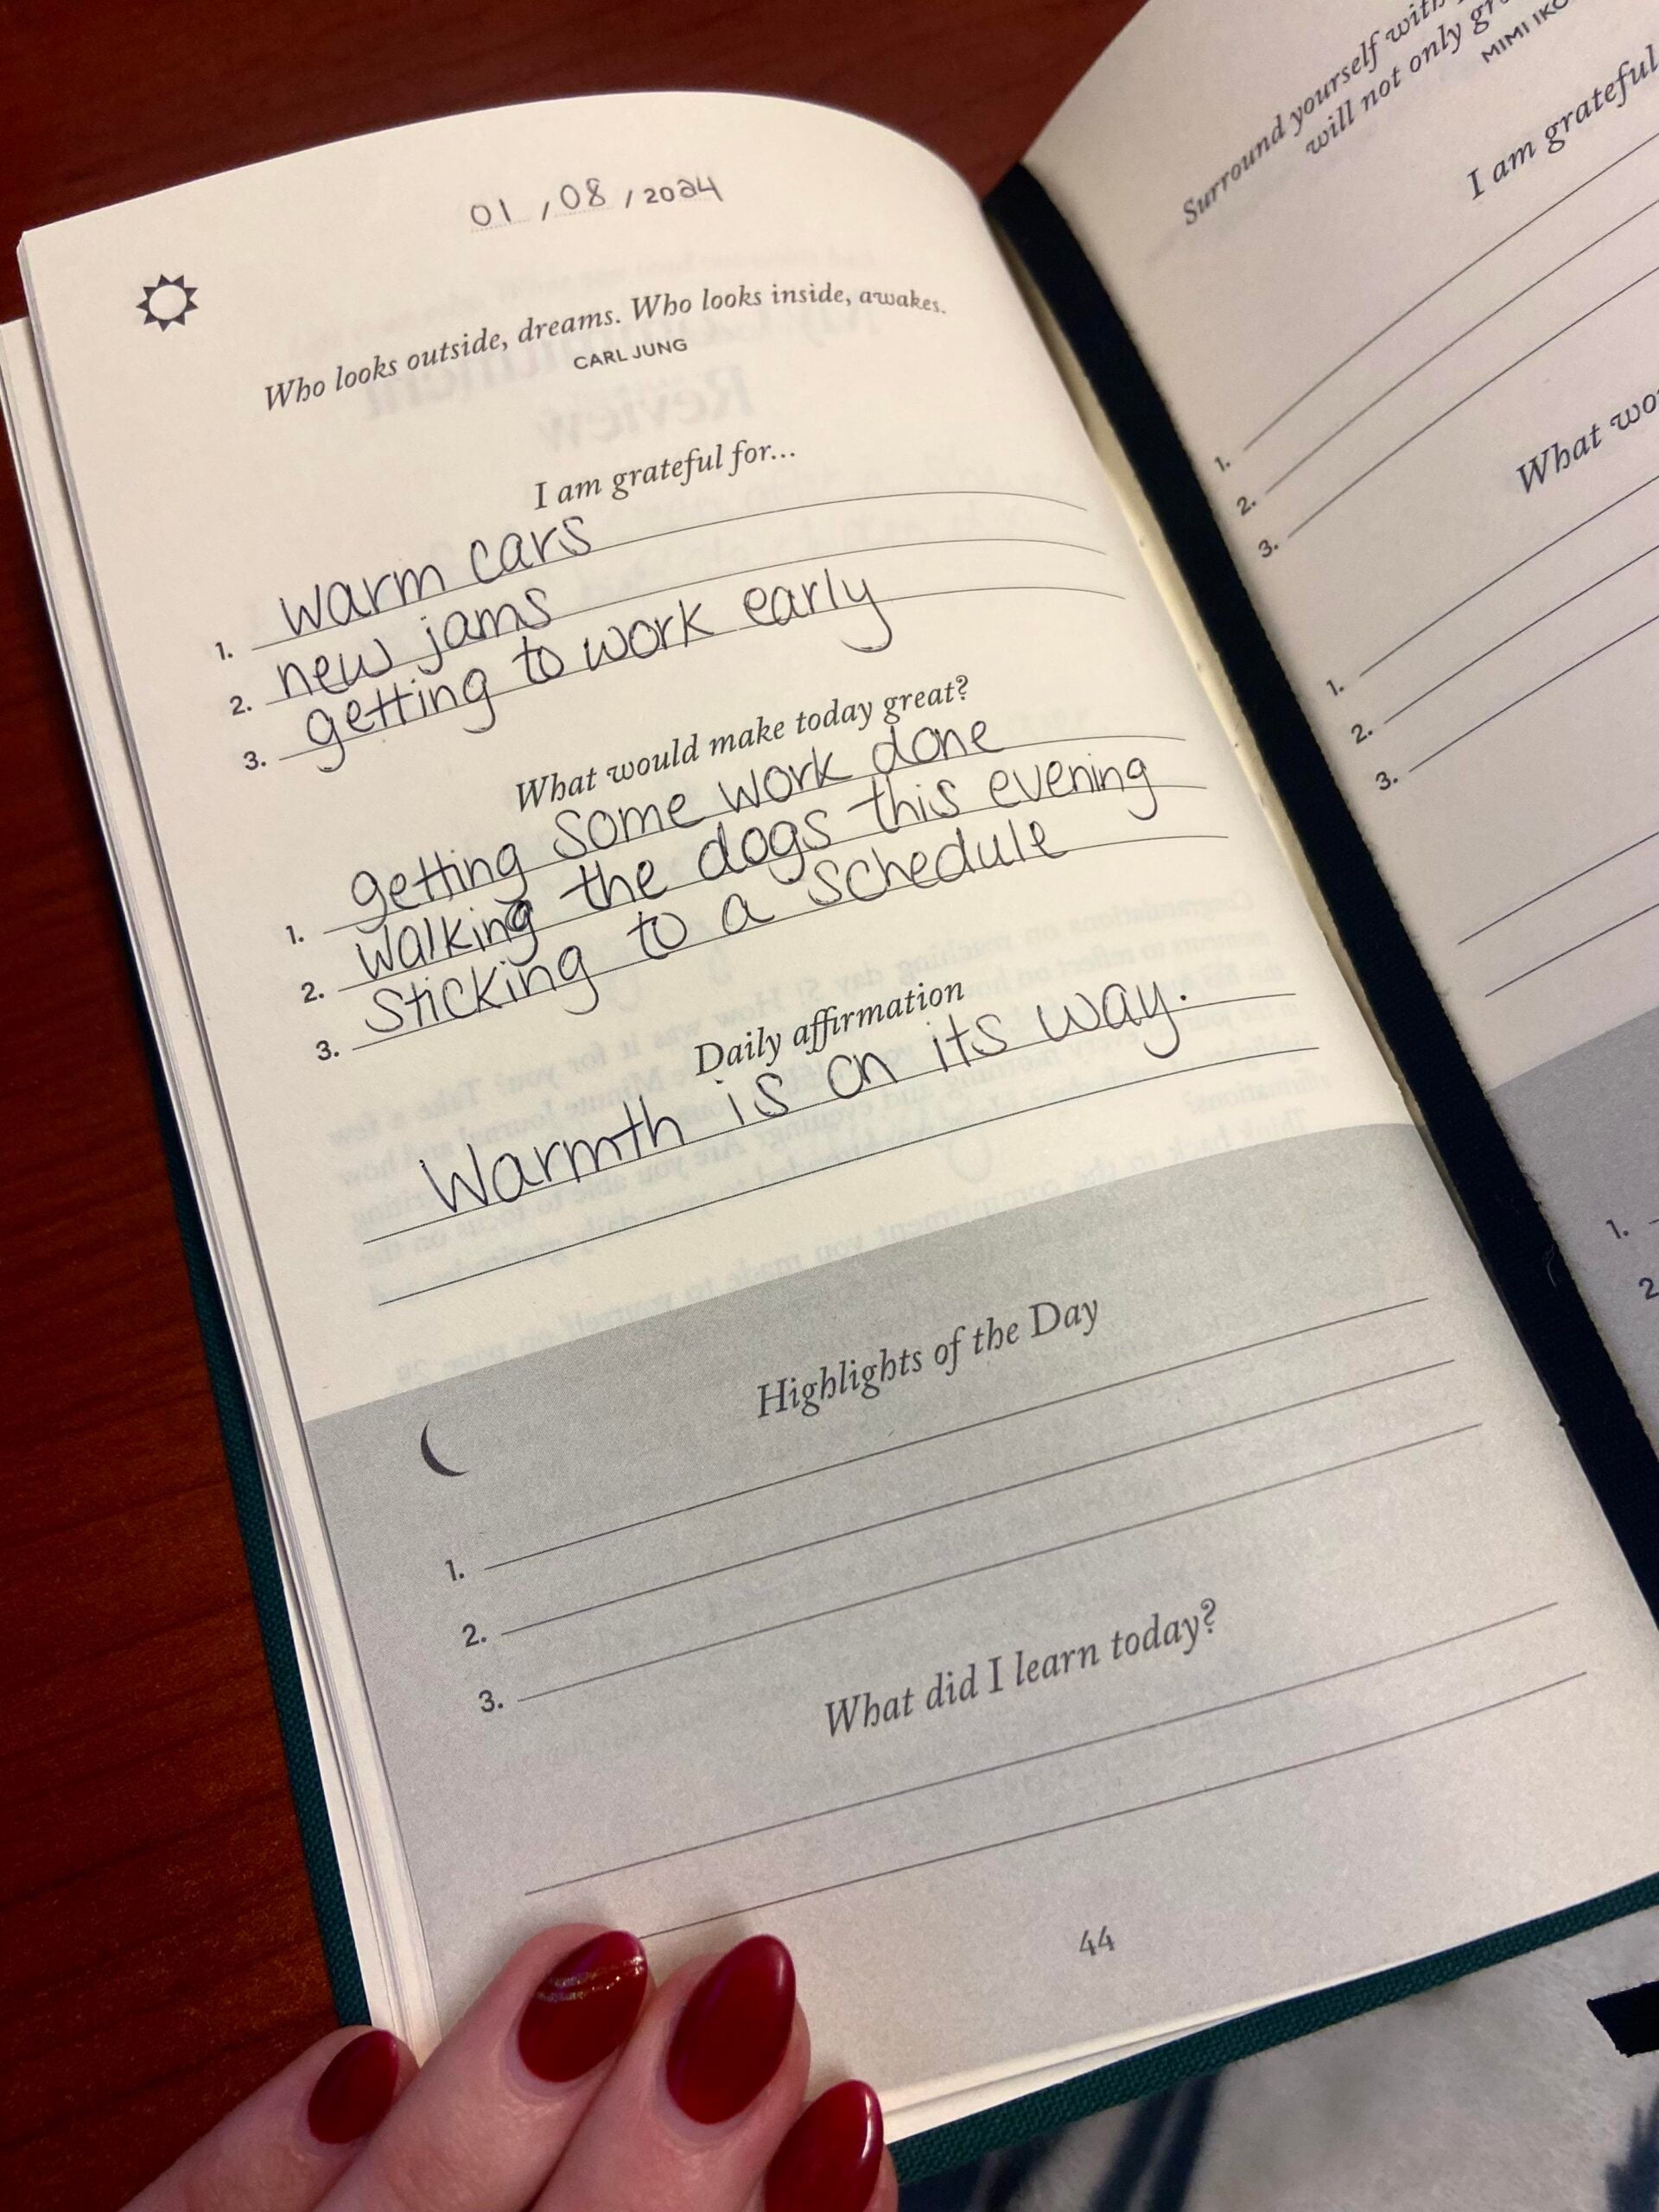 01 / 08 / 2024
Who looks outside, dreams. Who looks inside, awakes.
CARL JUNG
I am grateful for...
1. warm cars
2. new jams
3. getting to work early
What would make today great?
1. getting some work done
2. walking the dogs this evening
3. sticking to a schedule
Daily affirmation
Warmth is on its way.
Highlights of the Day
1.
2.
3.
What did I learn today?
44
Surround yourself with
will not only
MIMI
I am grateful
1.
2.
3.
What
1.
2.
3.
1.
2